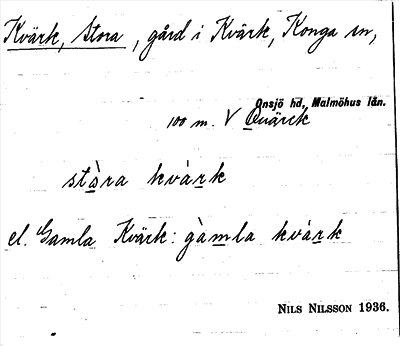 Kvärk, Stora, gård i Kvärk, Konga sn,
Onsjö hd, Malmöhus län.
100 m. V Quärck
stòra kvàrk
el. Gamla Kvärk: gàmla kvàrk
NILS NILSSON 1936.